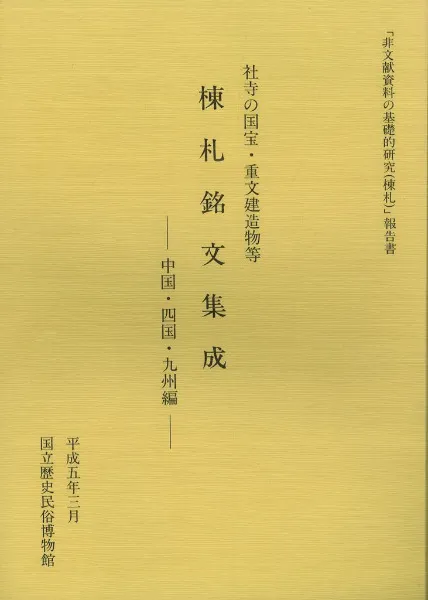 「非文献資料の基礎的研究(棟札)」報告書
社寺の国宝・重文建造物等
棟札銘文集成
――中国・四国・九州編――
平成五年三月
国立歴史民俗博物館